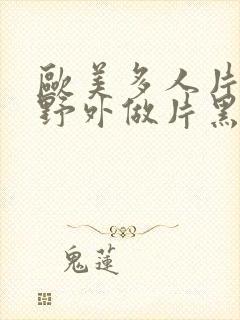 歐美多人片
野外做片黑
鬼蓮